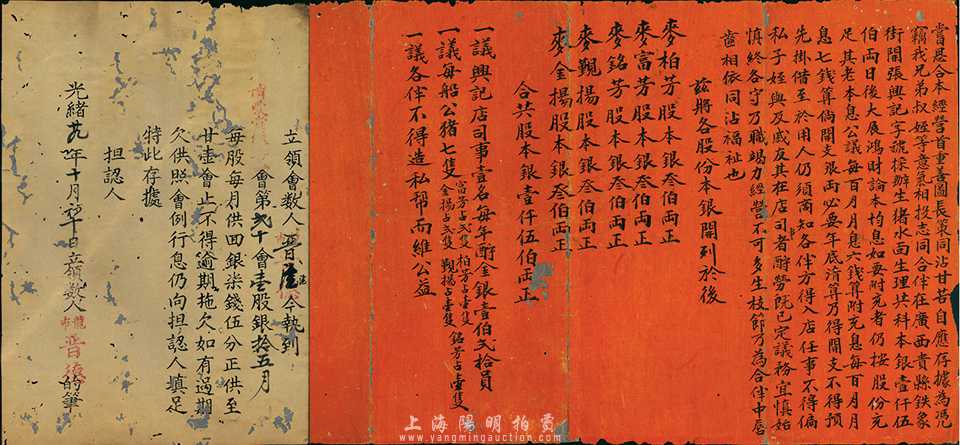 嘗思合本經營首重善圖長策同沾甘苦自應存據為憑
竊我兄弟叔姪等意氣相投志同合伴在廣西貴縣鉄象
街開張興記字號採辦生猪水面生理共科本銀壹仟伍
伯両日後大展鴻財論本均息如要附充者仍按股份充
足其老本息公議每百月月息六錢算附充息每百月月
息七錢算倘開支銀両必要年底清算乃得開支不得預
先掛借至於用人仍須商知各伴方得入店任事不得偏
私子姪與及戚友其在店司者酧勞既已定議務宜慎始
慎終各守乃職竭力經營不可多生枝節乃為合伴中唇
齒相依同沾福祉也
茲將各股份本銀開列於後
麥柏芳股本銀叁伯両正
麥富芳股本銀叁伯両正
麥銘芳股本銀叁伯両正
麥觀揚股本銀叁伯両正
麥金揚股本銀叁伯両正
合共股本銀壹仟伍伯両正
一議興記店司事壹名每年酧金銀壹伯弍拾員
一議每船公猪七隻富芳占弍隻柏芳占壹隻金揚占弍隻觀揚占壹隻銘芳占壹隻
一議各伴不得造私幇而維公益
立領會數人晋德公執到
會第弍十會壹股銀拾五月
每股每月供回銀柒錢伍分正供至
廿壹會止不得逾期拖欠如有過期
欠供照會例行息仍向担認人填足
特此存據
担認人
光緒年十月十日立領數人晋德的筆
龍市
上海陽明拍賣
www.yangmingauction.com